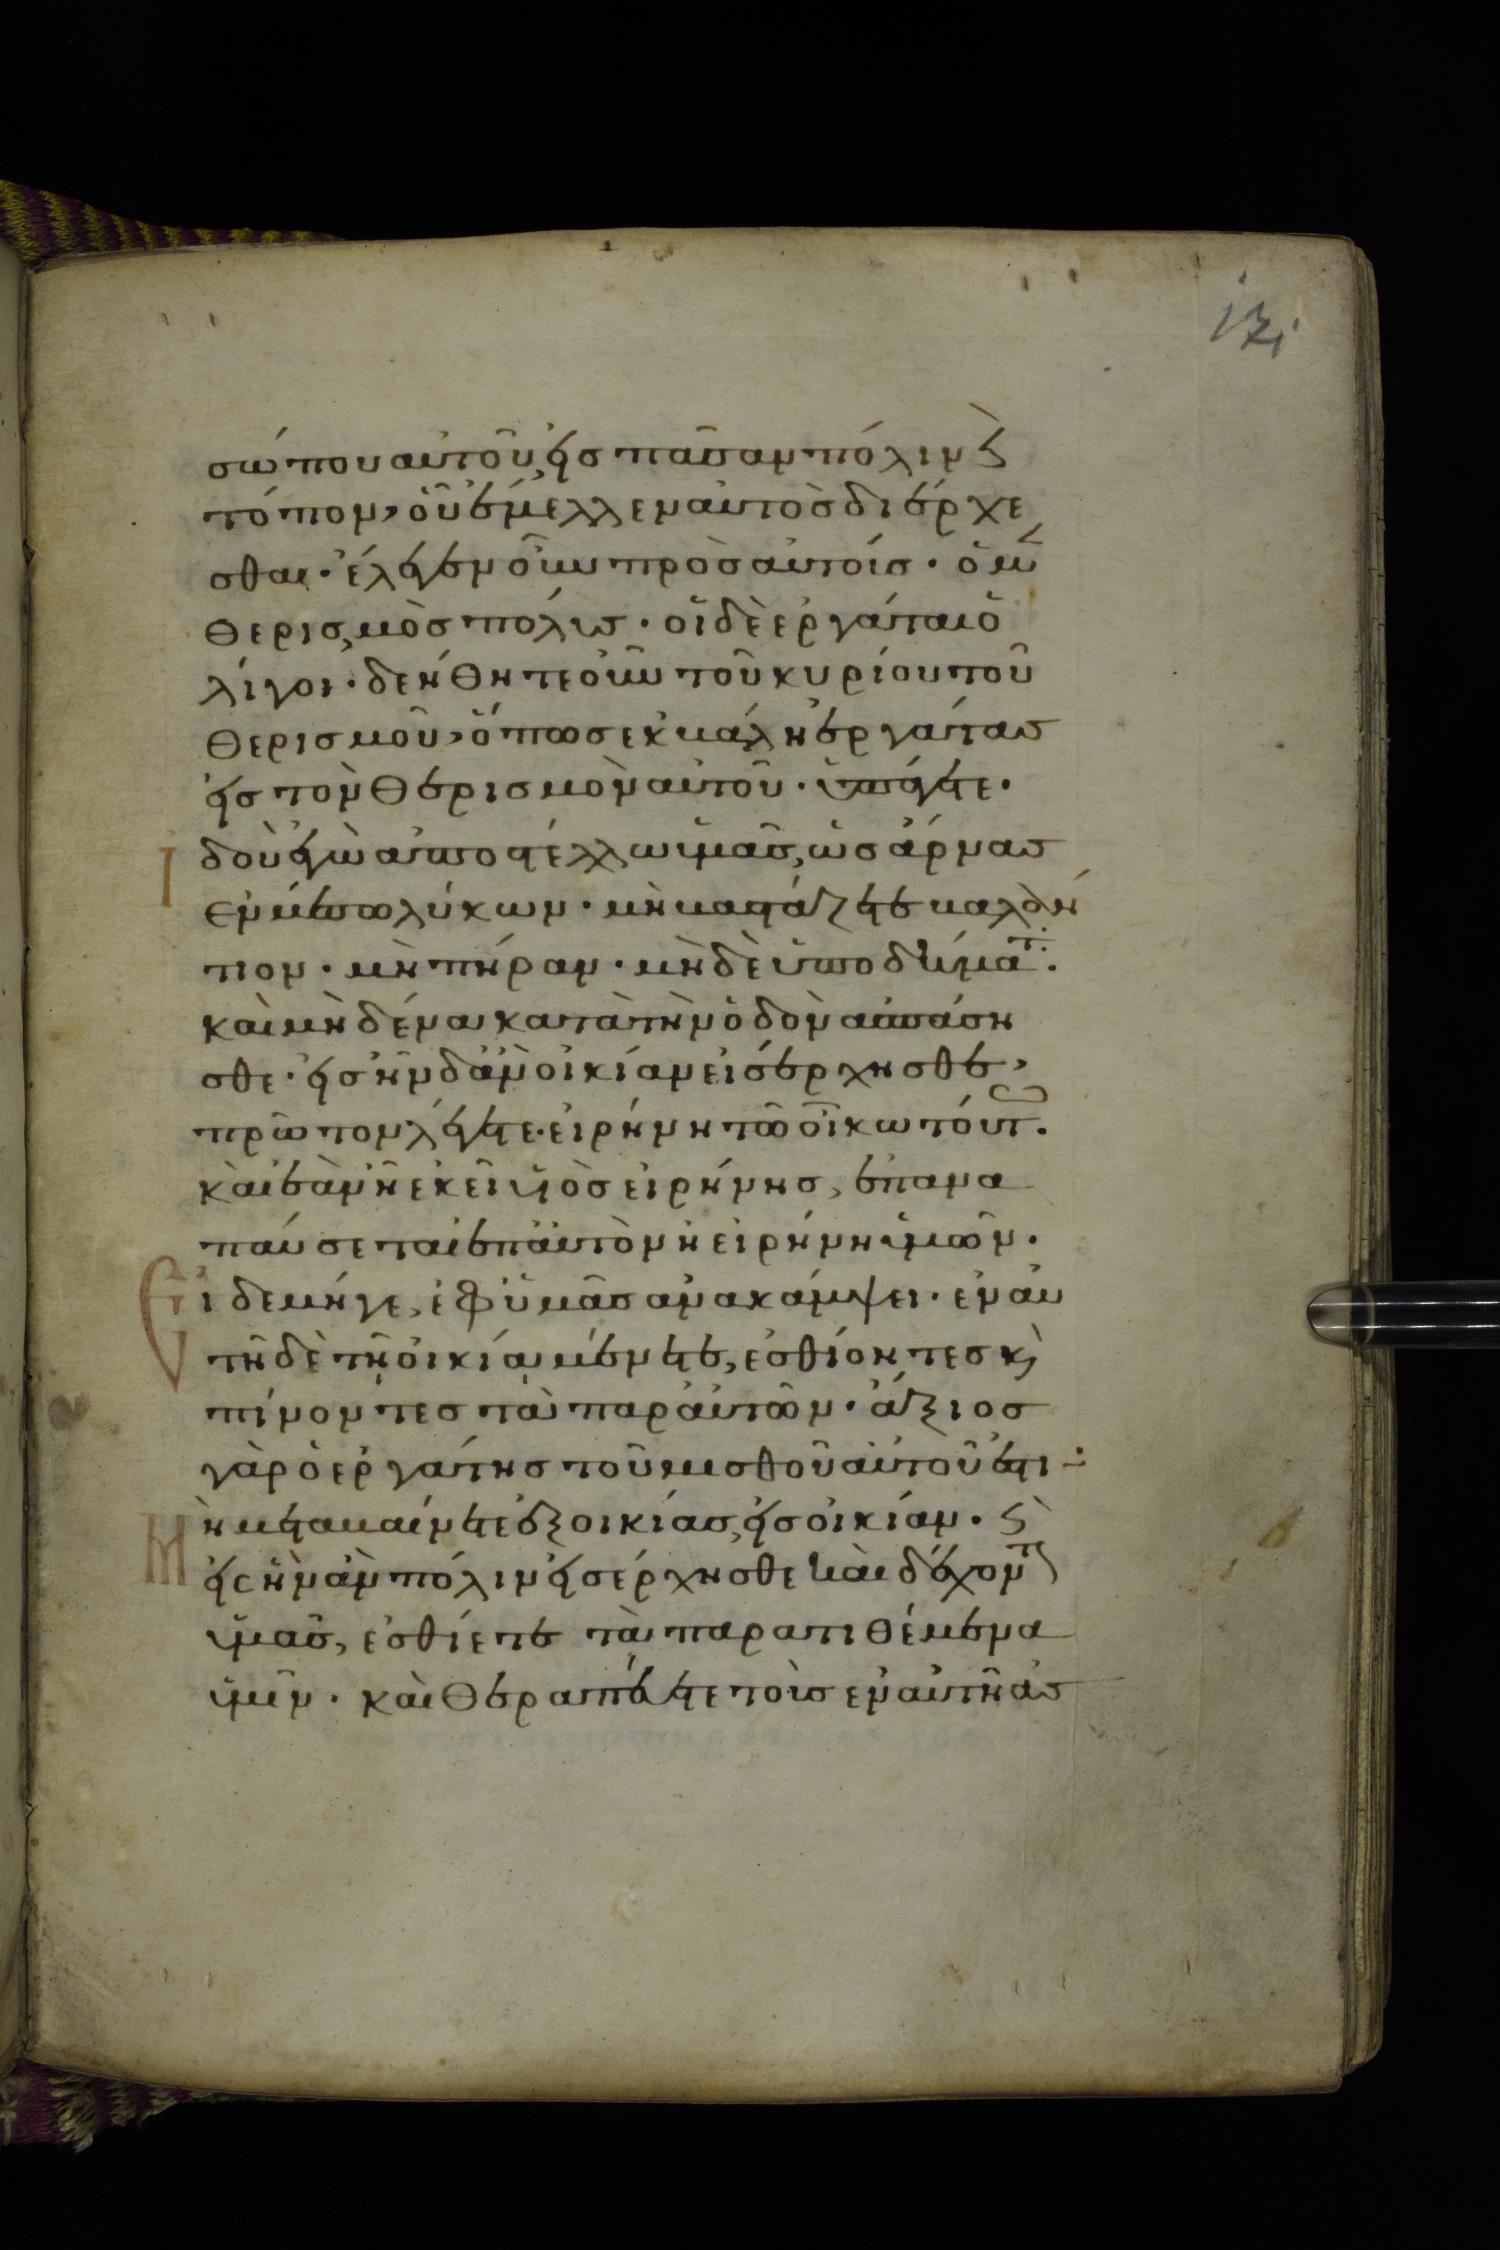 ιζ
σώπου αὐτοῦ, εἰς πᾶσαν πόλιν ϛ̀
τόπον, οὗ ἔμελλεν αὐτὸς διέρχε
σθαι· ἔλεγεν οὖν πρὸς αὐτοίς· ὁ μ̅
θερισμὸς πολύς· οἱ δὲ ἐργάται ὀ
λίγοι· δεήθητε οὖν τοῦ κυρίου τοῦ
θερισμοῦ, ὅπως ἐκβάλη ἐργάτας
εἰς τὸν θερισμὸν αὐτοῦ· ὑπάγετε·
Ἰδοὺ ἐγὼ ἀποστέλλω ὑμᾶς, ὡς ἄρνας
ἐν μέσω λύκων· μὴ βαστάζετε βαλάν
τιον· μὴ πήραν· μὴ δὲ ὑποδήματ·
καὶ μὴ δένα κατὰ τὴν ὁδὸν ἀσπάση
σθε· εἰς ἣν δ' ἂν οἰκίαν εἰσέρχησθε,
πρῶτον λέγετε· εἰρήνη τῶ οἴκω τούτ·
καὶ ἐὰν ἦ ἐκεῖ υἱὸς εἰρήνης, ἐπανα
παύσεται ἐπ' αὐτὸν ἡ εἰρήνη ὑμῶν·
Εἰ δεμήγε, ἐφ' ὑμᾶς ἀνακάμψει· ἐν αὐ
τῆ δὲ τῆ οἰκία μένετε, ἐσθίοντες κ̀
πίνοντες τὰ παρ' αὐτῶν· ἄξιος
γὰρ ὁ ἐργάτης τοῦ μισθοῦ αὐτοῦ ἐστι·
Μὴ μεταβαίνετε ἐξ οἰκίας, εἰς οἰκίαν· ϛ̀
εἰς ἣν ἂν πόλιν εἰσέρχησθε καὶ δέχοντ
ὑμᾶς, ἐσθίετε τὰ παρατιθέμενα
ὑμῖν· καὶ θεραπεύετε τοὺς ἐν αὐτῆ ἀσ